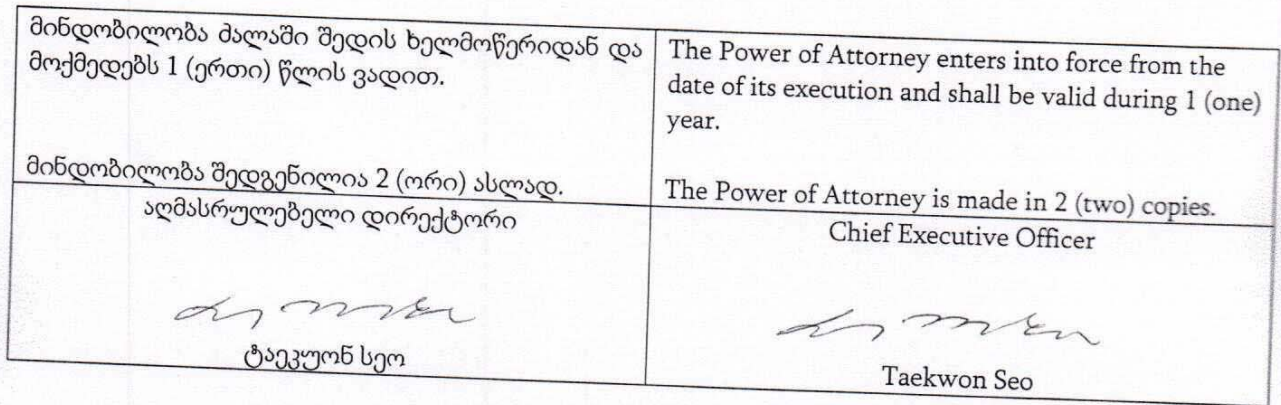 მინდობილობა ძალაში შედის ხელმოწერიდან და
მოქმედებს 1 (ერთი) წლის ვადით.
მინდობილობა შედგენილია 2 (ორი) ასლად.
The Power of Attorney enters into force from the
date of its execution and shall be valid during 1 (one)
year.
The Power of Attorney is made in 2 (two) copies.
აღმასრულებელი დირექტორი
ტაეკუონ სეო
Chief Executive Officer
Taekwon Seo